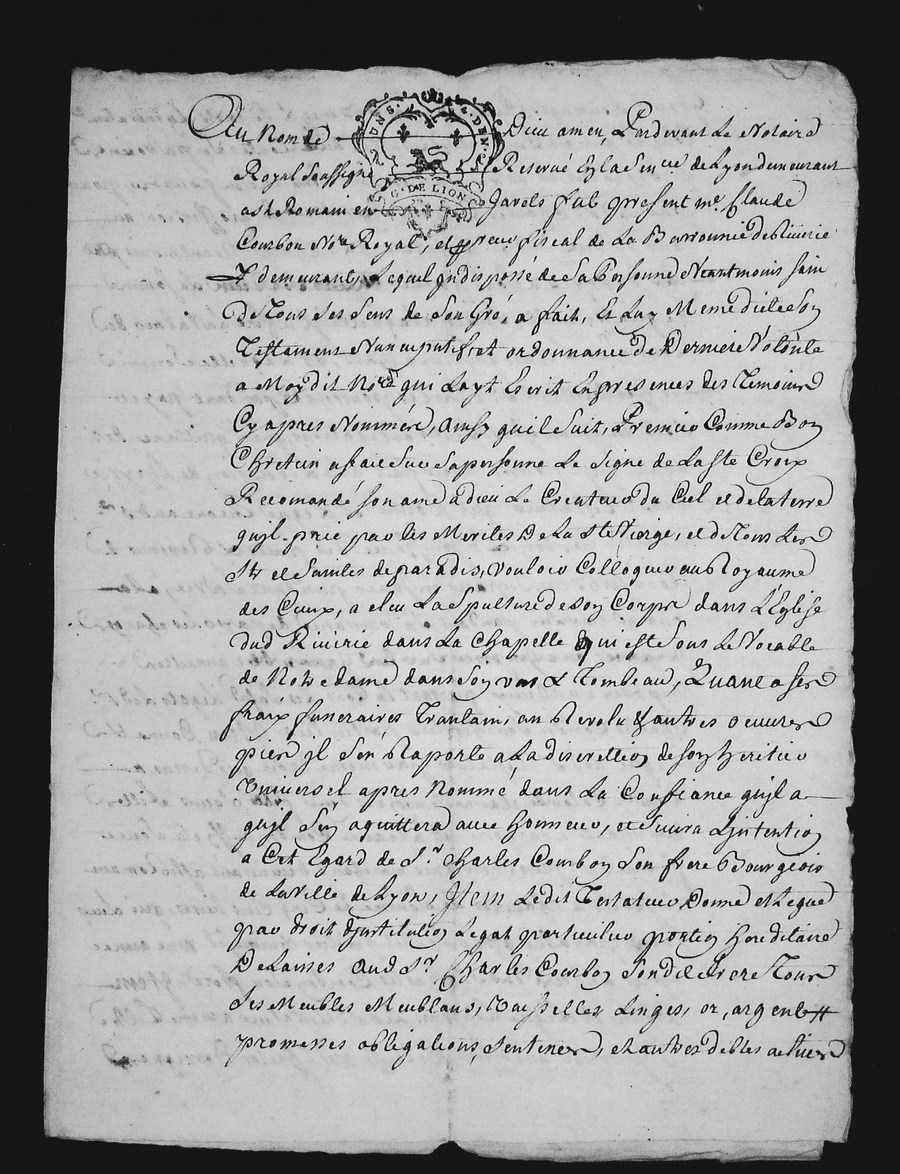 Au Nom de Dieu amen, Pardevant Le Notaire
UN S. 4. DEN.
Royal Soussigné Reservé En la Sen.cée de Lyon demeurant
G. DE LION
a St Romain en Jarets fut present me. Claude
Courbon No.re Royal, et procu.r fiscal de La Barronnie de Riuirie
Y demeurant, Lequel Indisposé de Sa Personne Neantmoins Sain
de Tous Ses Sens de Son Gré, a fait, Et Luy Meme dicté Son
Testament Nuncupatif et ordonnance de Derniere Volonté
a Moydit No.re qui Layt Escrit En presences des Temoins
Cy apres Nommés, ainsy quil Suit, Premier Comme Bon
Chretien a faic Sur Sa personne Le Signe de La Ste Croix
Recomandé Son ame a dieu Le Createur du Ciel et de la terre
quil prie par les Merites De La Ste Vierge, et de Tous Les
Sts et Saintes de paradis, Vouloir Colloquer au Royaume
des Cieux, a eleu La Spulture de Son Corps dans L'Eglise
dud Riuirie dans La Chapelle qui est Sous Le Vocable
de Notre dame dans Son Vas & Tombeau, Quant a ses
fraix funeraires Trantain, an Revolu & autres oeuures
pies jl S'en Raporte a La discretion de Son heritier
Vniversel apres Nommé dans La Confiance quil a
quil S'en aquittera auec Honneur, et Suiura L'intention
a Cet Egard de S.r Charles Courbon Son frere Bourgeois
de La Ville de Lyon, Item Ledit Testateur Donne et Legue
par droit d'institution Legat particulier portion Hereditaire
Delaisse aud S.r Charles Courbon Son dit frere Tous
Ses Meubles Meublans, Vaisselles Linges, or, argent
promesses obligations, Sentences, et autres debtes actiues